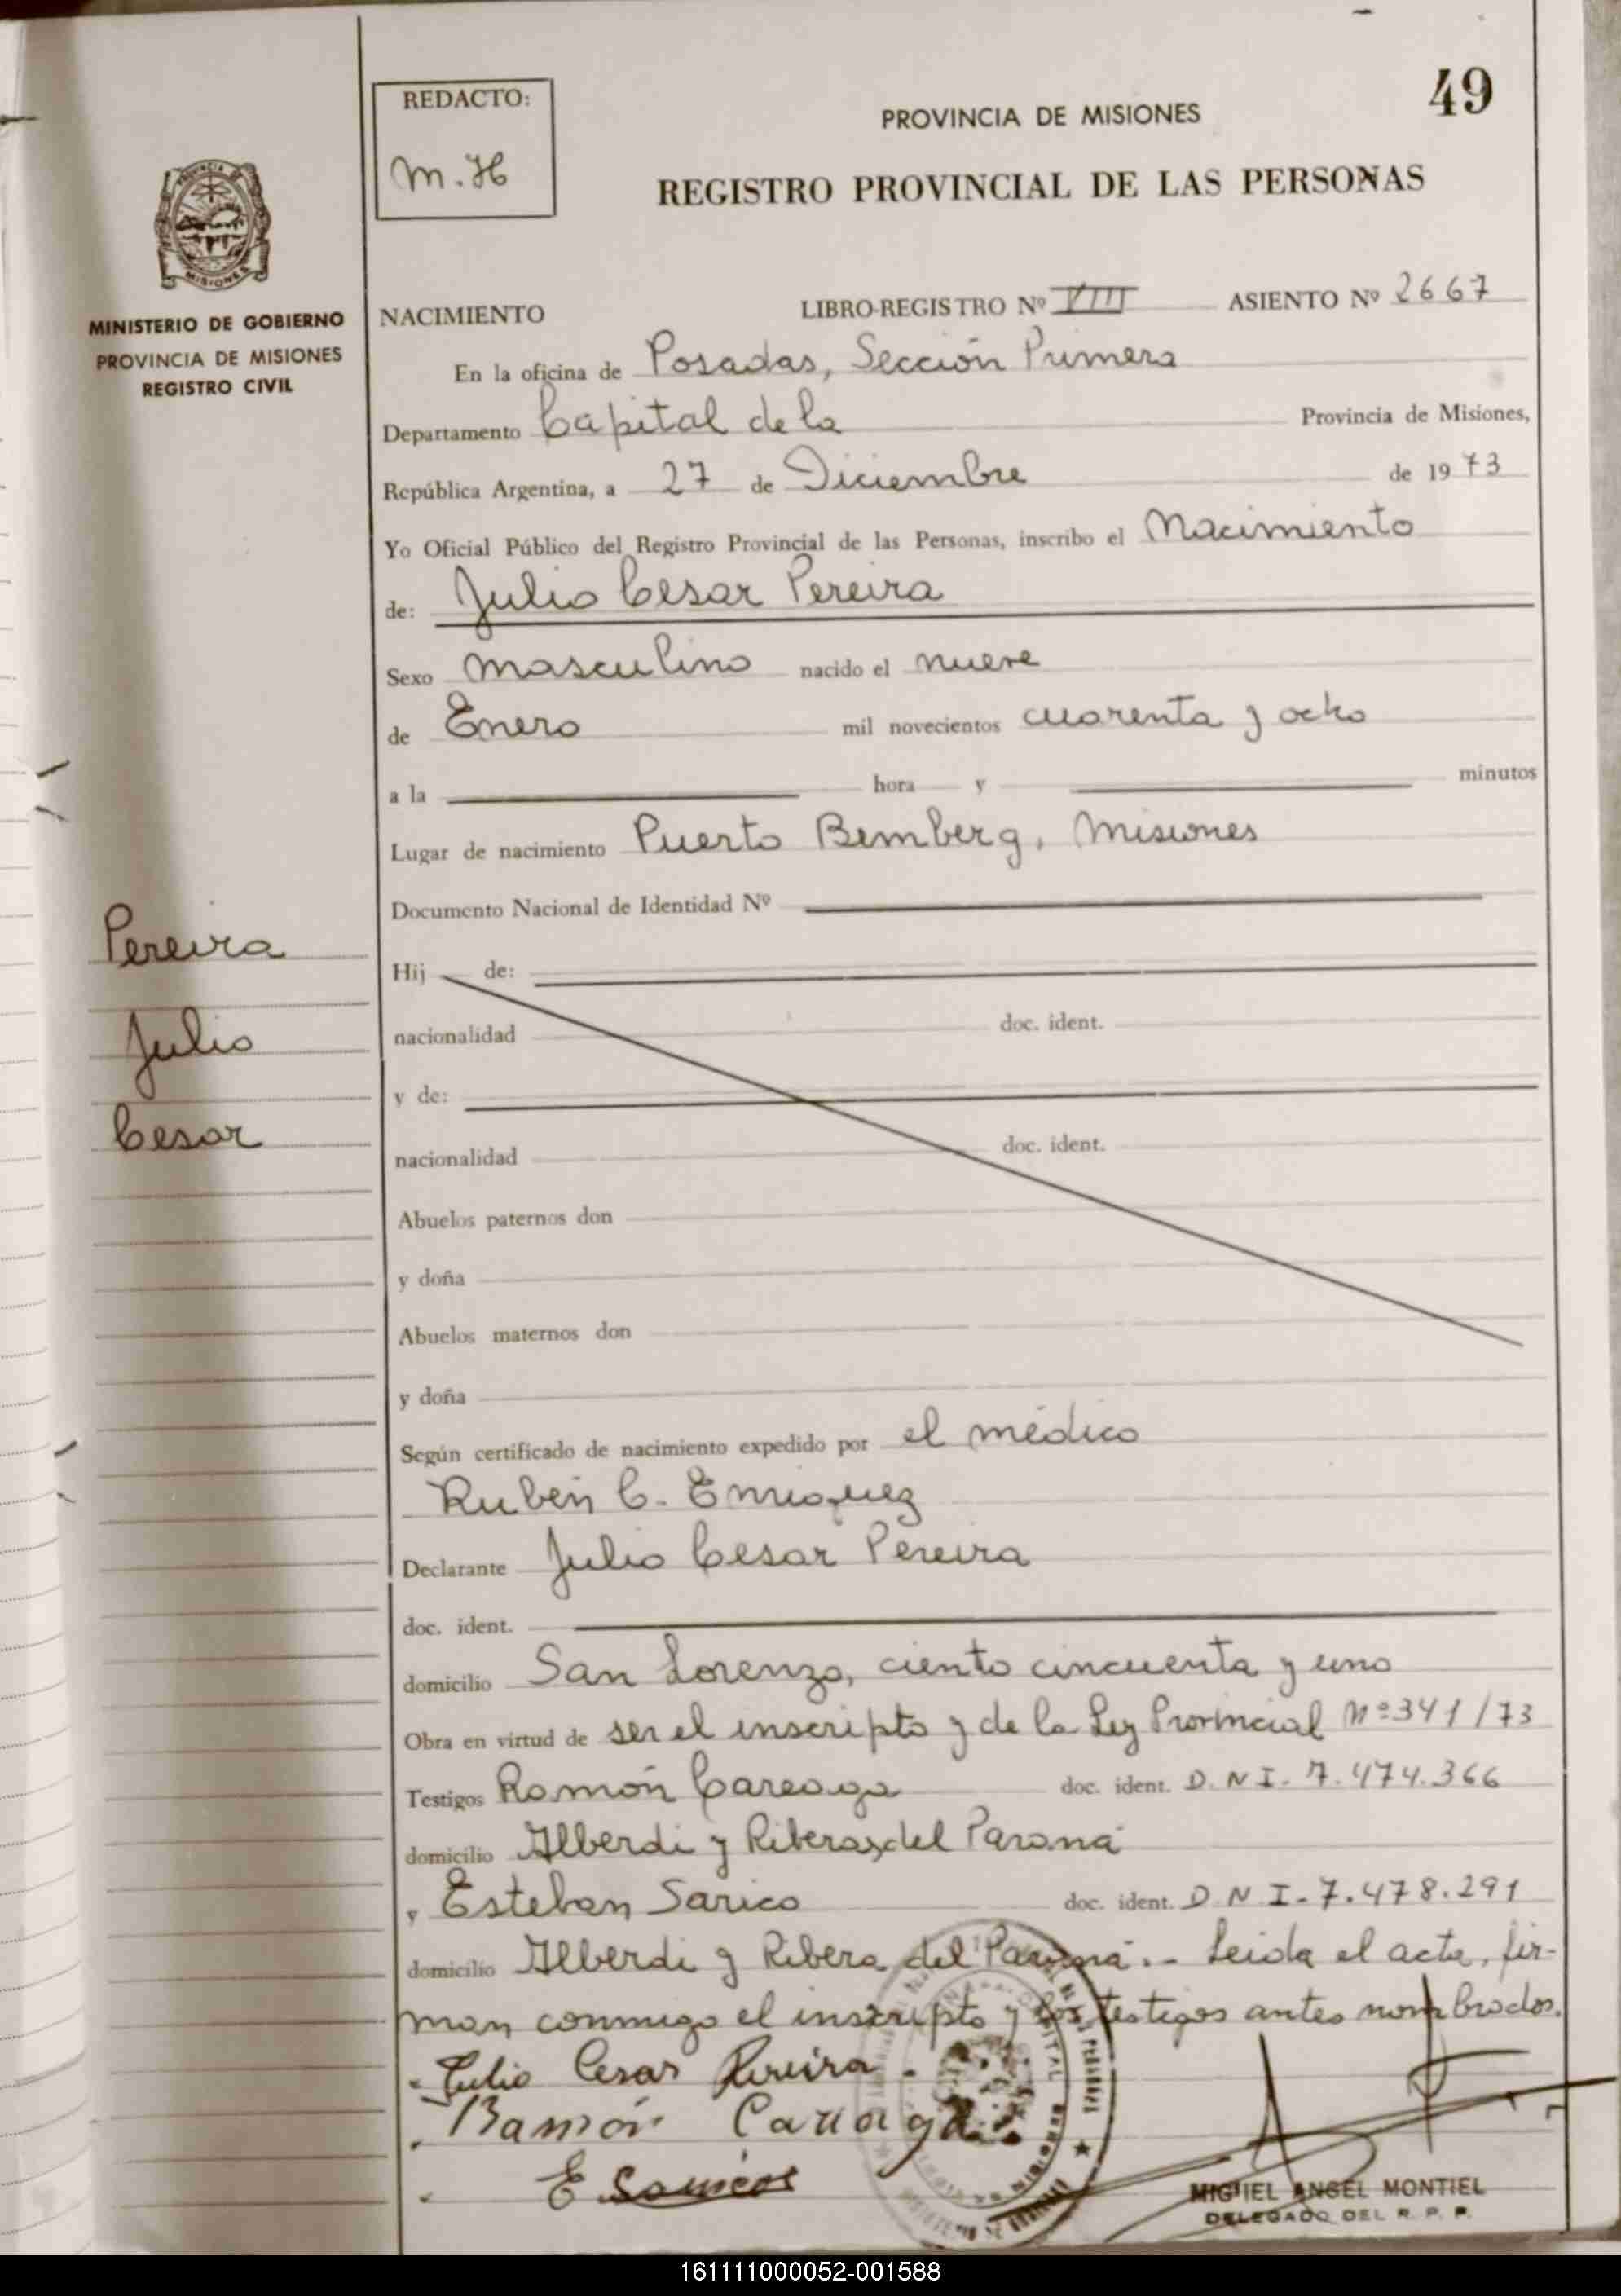 49
REDACTO:
M.H
PROVINCIA DE MISIONES
REGISTRO PROVINCIAL DE LAS PERSONAS
MISIONES
MINISTERIO DE GOBIERNO
PROVINCIA DE MISIONES
REGISTRO CIVIL
NACIMIENTO LIBRO-REGISTRO Nº VIII ASIENTO Nº 2667
En la oficina de Posadas, Sección Primera
Departamento Capital de la Provincia de Misiones,
República Argentina, a 27 de Diciembre de 1973
Yo Oficial Público del Registro Provincial de las Personas, inscribo el Nacimiento
de: Julio Cesar Pereira
Sexo masculino nacido el nueve
de Enero mil novecientos cuarenta y ocho
a la hora y minutos
Lugar de nacimiento Puerto Bemberg, Misiones
Documento Nacional de Identidad Nº
Pereira
Julio
Cesar
Hij de:
nacionalidad doc. ident.
y de:
nacionalidad doc. ident.
Abuelos paternos don
y doña
Abuelos maternos don
y doña
Según certificado de nacimiento expedido por el médico
Rubén C. Enriquez
Declarante Julio Cesar Pereira
doc. ident.
domicilio San Lorenzo, ciento cincuenta y uno
Obra en virtud de ser el inscripto y de la Ley Provincial Nº 341/73
Testigos Ramón Careaga doc. ident. D.N.I. 7.474.366
domicilio Alberdi y Ribera del Paraná
y Esteban Sarico doc. ident. D N I - 7.478.291
domicilio Alberdi y Ribera del Paraná.- Leida el acta, fir-
man conmigo el inscripto y los testigos antes nombrados.
Julio Cesar Pereira
Ramón Careaga
MIGUEL ANGEL MONTIEL
DELEGADO DEL R. P. P.
161111000052-001588